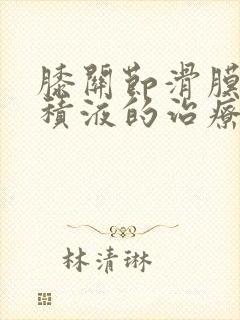 膝關節滑膜
積液的治療
林清琳